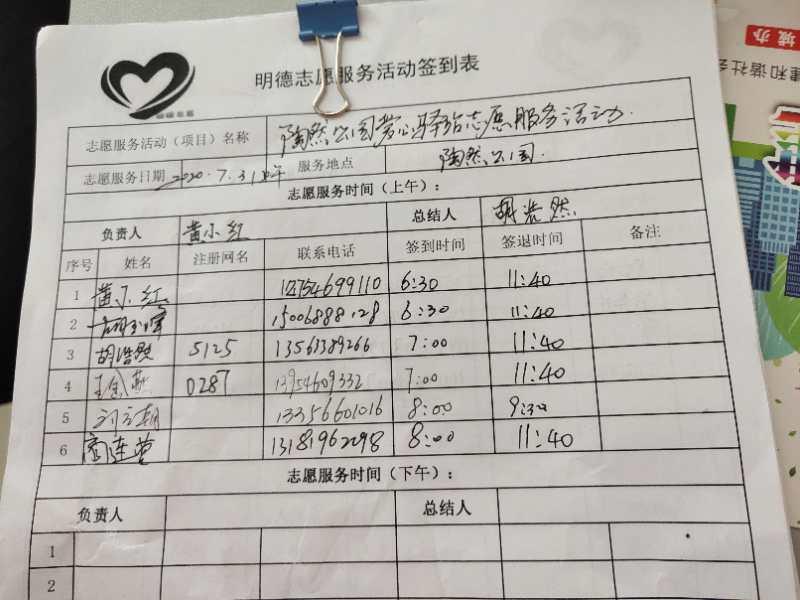 明德志愿服务活动签到表
志愿服务活动（项目）名称 陶然公园爱心驿站志愿服务活动
志愿服务日期 2020.7.31 服务地点 陶然公园
志愿服务时间（上午）：
负责人 黄小红 总结人 胡浩然
序号 姓名 注册网名 联系电话 签到时间 签退时间 备注
1 黄小红 6:30 11:40
2 15006888128 6:30 11:40
3 胡浩然 5125 13561389266 7:00 11:40
4 0287 13954609332 7:00 11:40
5 13356601016 8:00 9:30
6 商连营 13181962298 8:00 11:40
志愿服务时间（下午）：
负责人 总结人
1
2
城办
建和谐社会